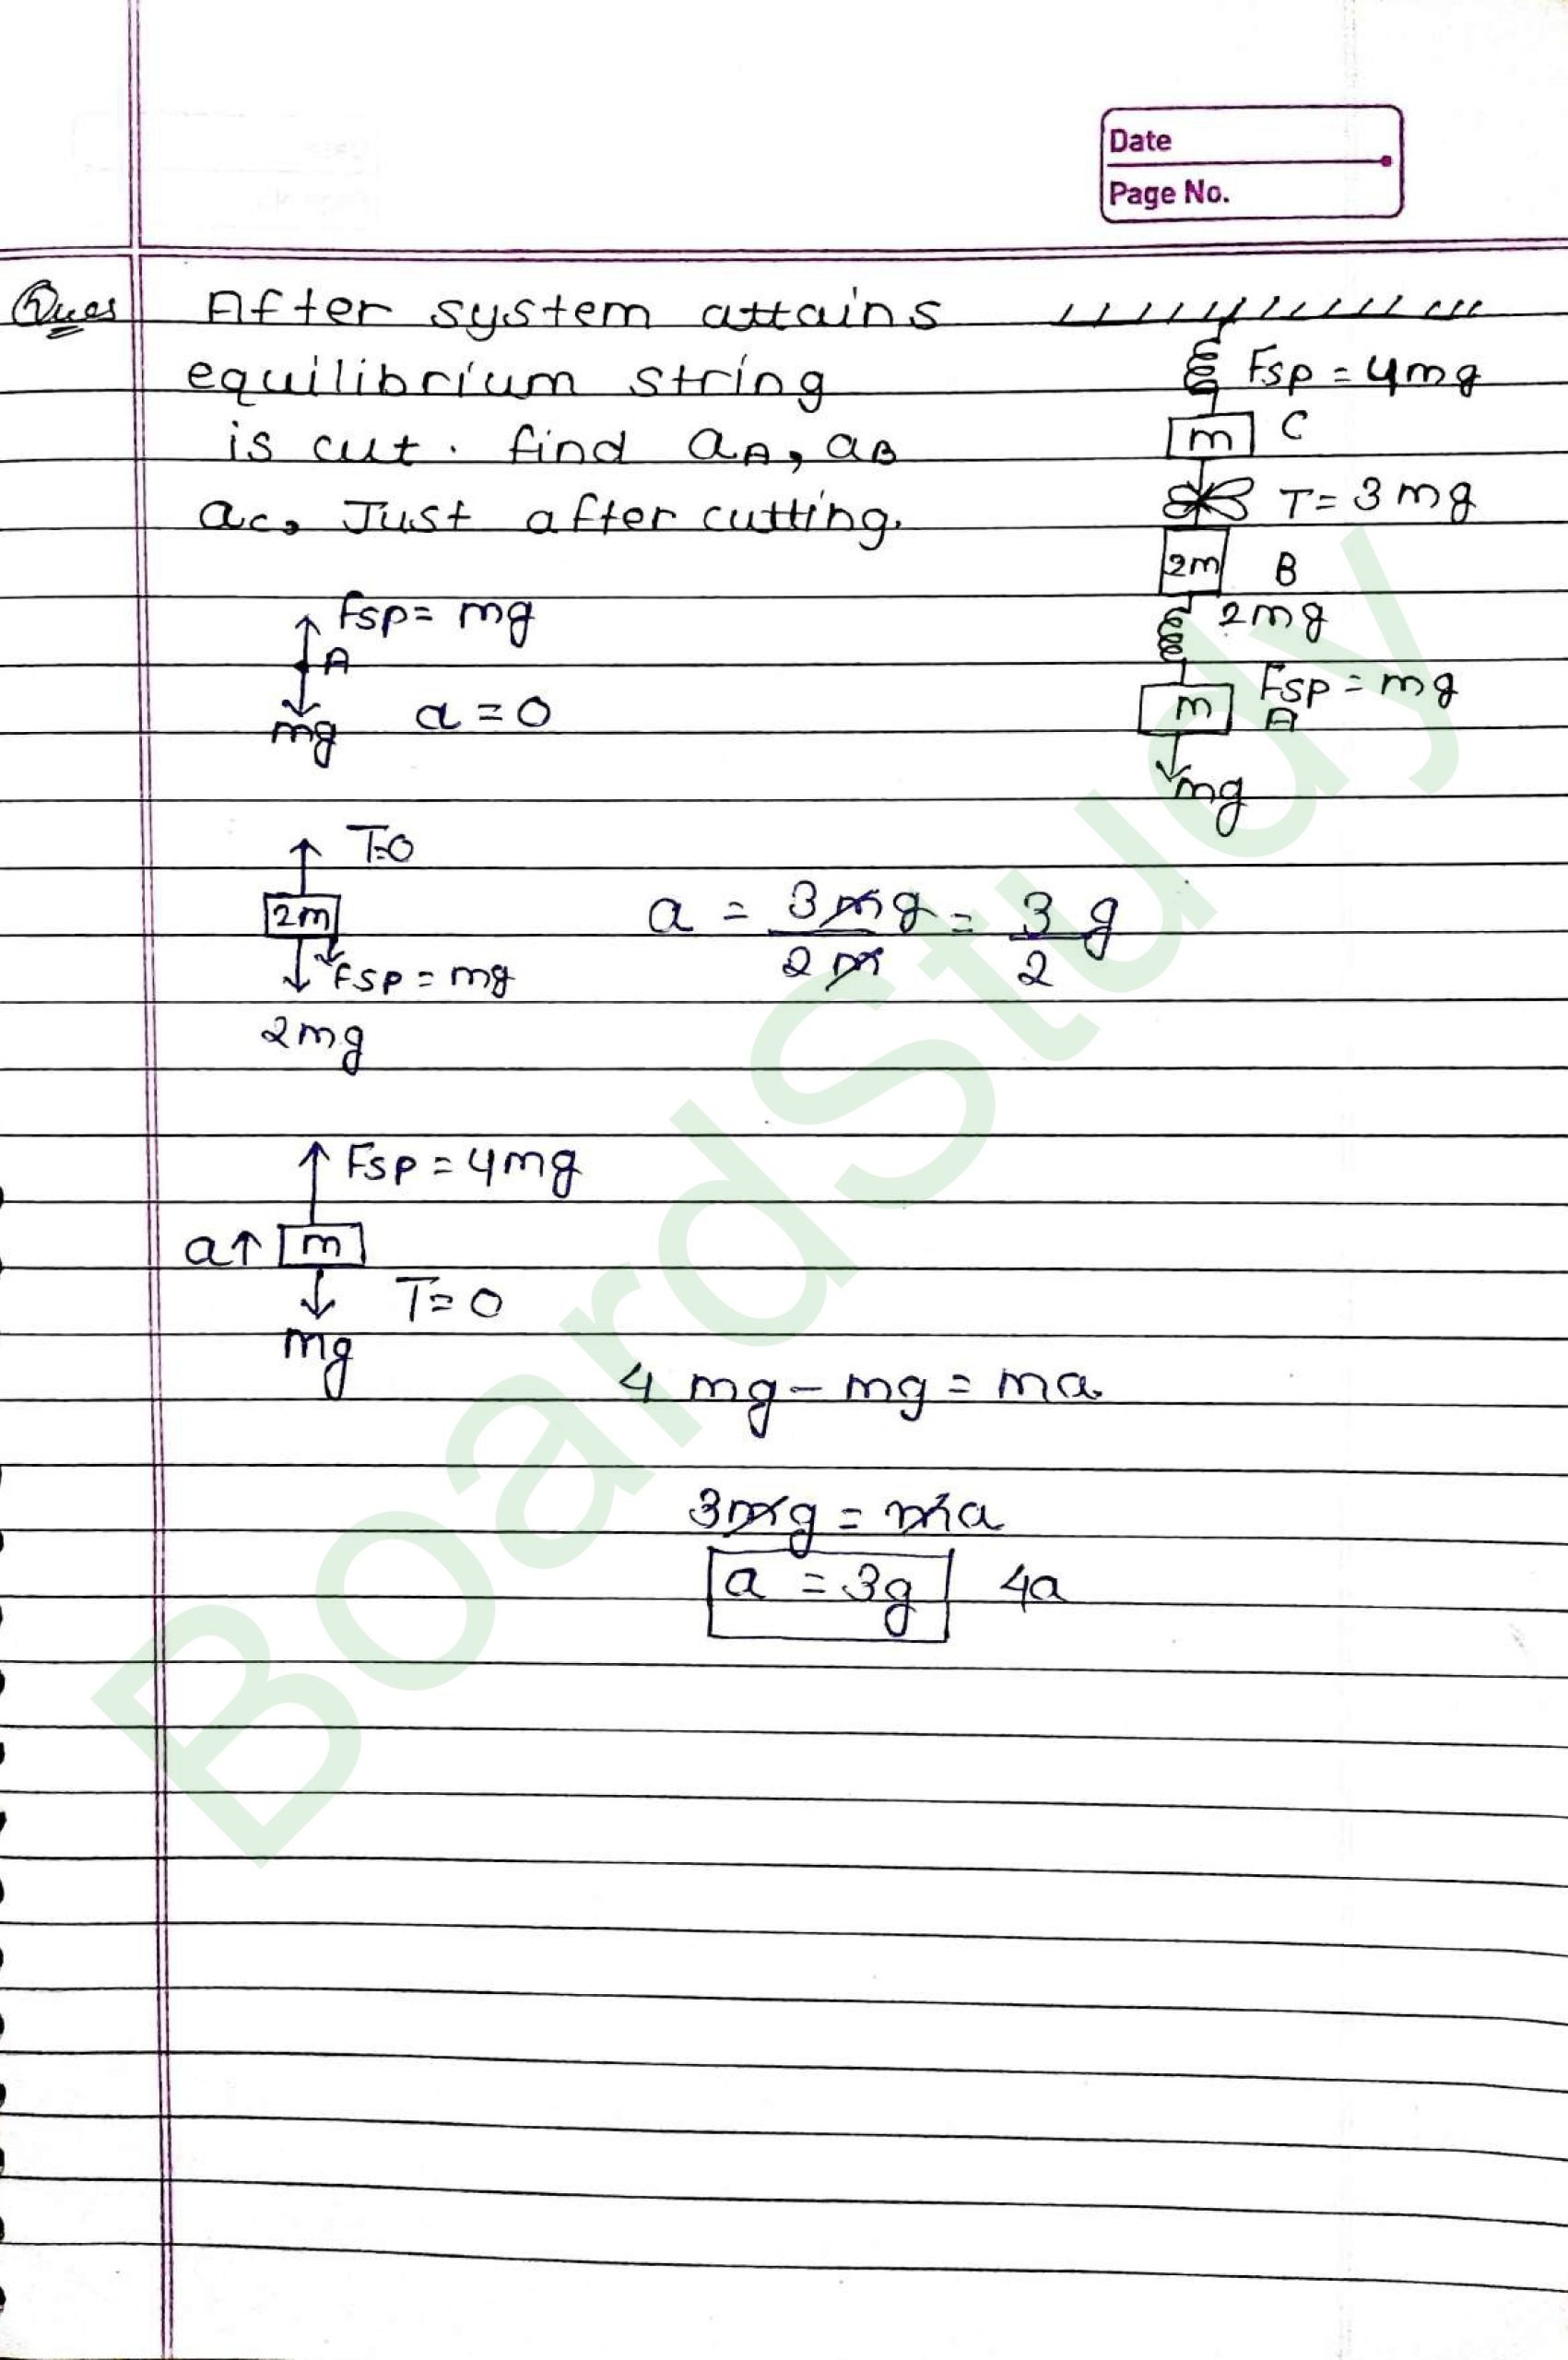 Date
Page No.
Ques After system attains
equilibrium string
is cut. find aA, aB
ac, Just after cutting.
Fsp = 4mg
m C
T = 3mg
2m B
2mg
Fsp = mg
m A
mg
Fsp = mg
A
mg a = 0
T=0
2m
Fsp = mg
2mg
a = 3mg/2m = 3/2 g
Fsp = 4mg
a↑ m
T = 0
mg
4 mg - mg = ma
3mg = ma
a = 3g 4a
BoardStudy